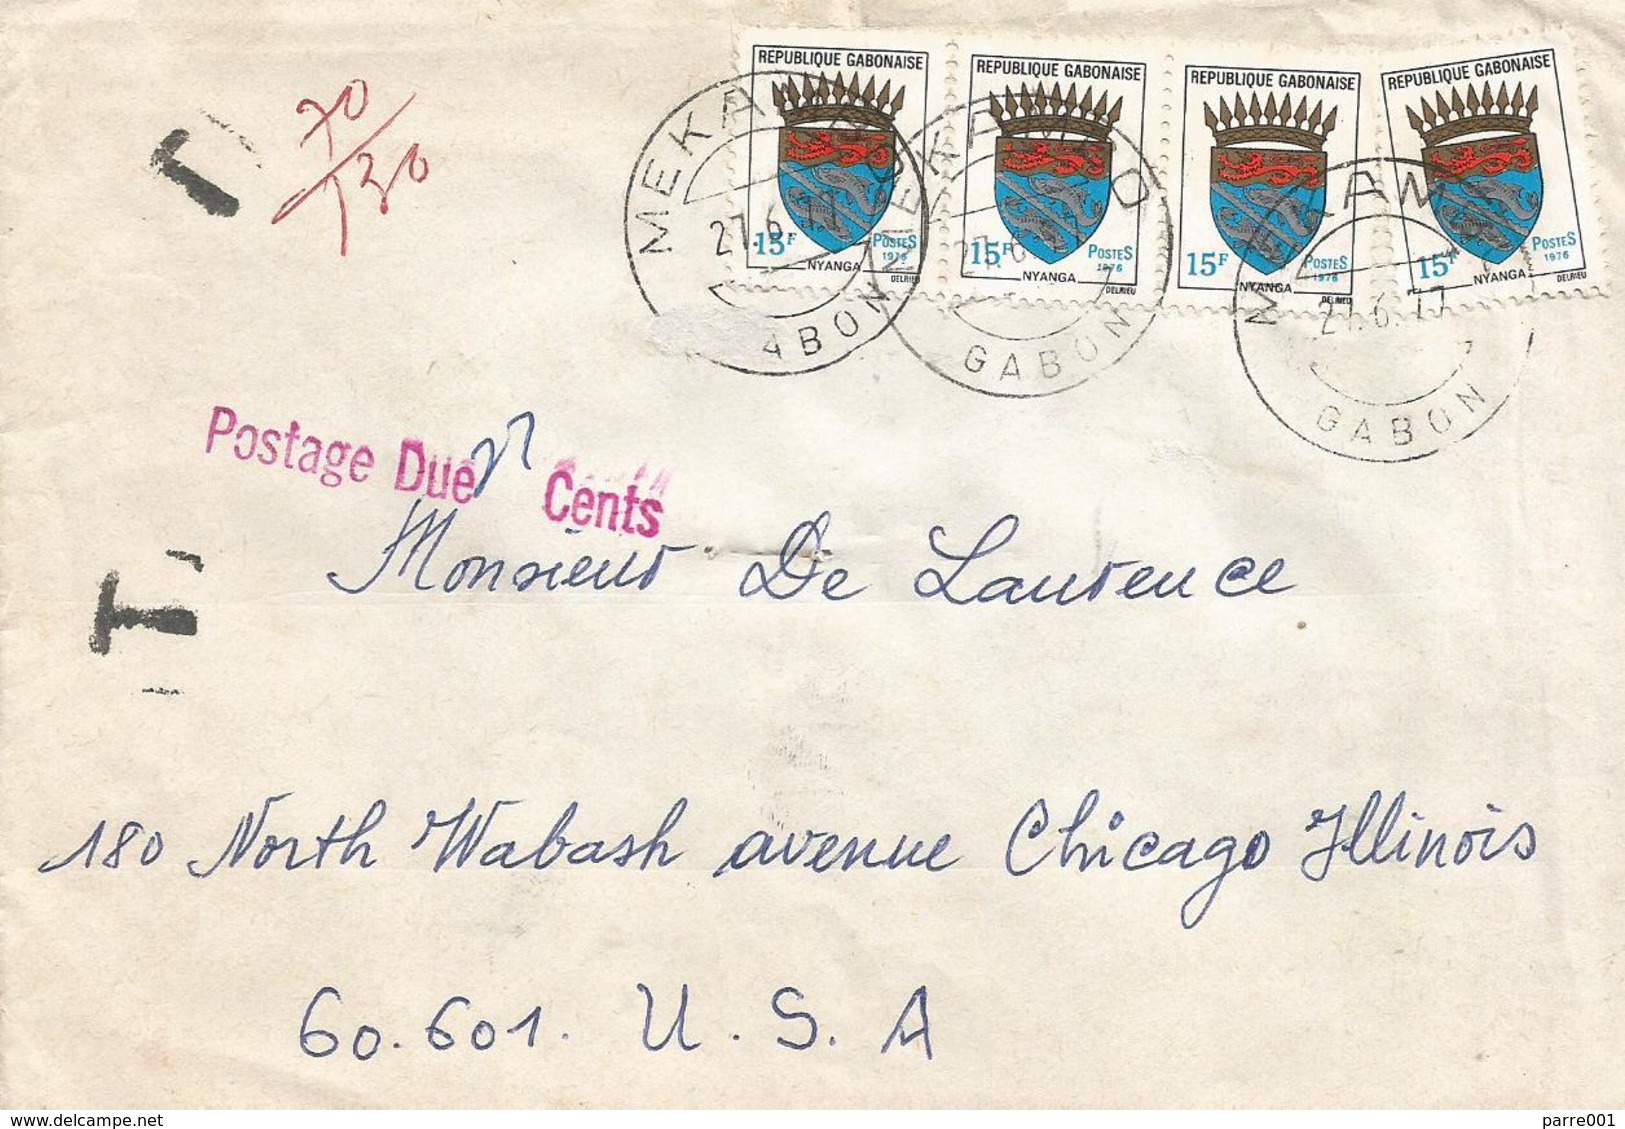 REPUBLIQUE GABONAISE REPUBLIQUE GABONAISE REPUBLIQUE GABONAISE REPUBLIQUE GABONAISE
15F POSTES 1976 15F POSTES 1976 15F POSTES 1976 15F POSTES 1976
NYANGA DELRIEU NYANGA DELRIEU NYANGA DELRIEU NYANGA DELRIEU
MEKA 27.6.77 GABON
EKAMBO GABON
MEKAM 27.6.77 GABON
T
70
130
Postage Due Cents
T
Monsieur De Laurence
180 North Wabash avenue Chicago Illinois
60.601. U. S. A
www.delcampe.net
parre001